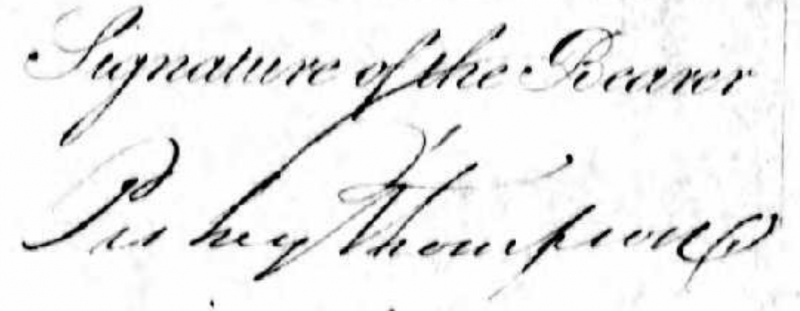 Signature of the Bearer
Pishey Thompson